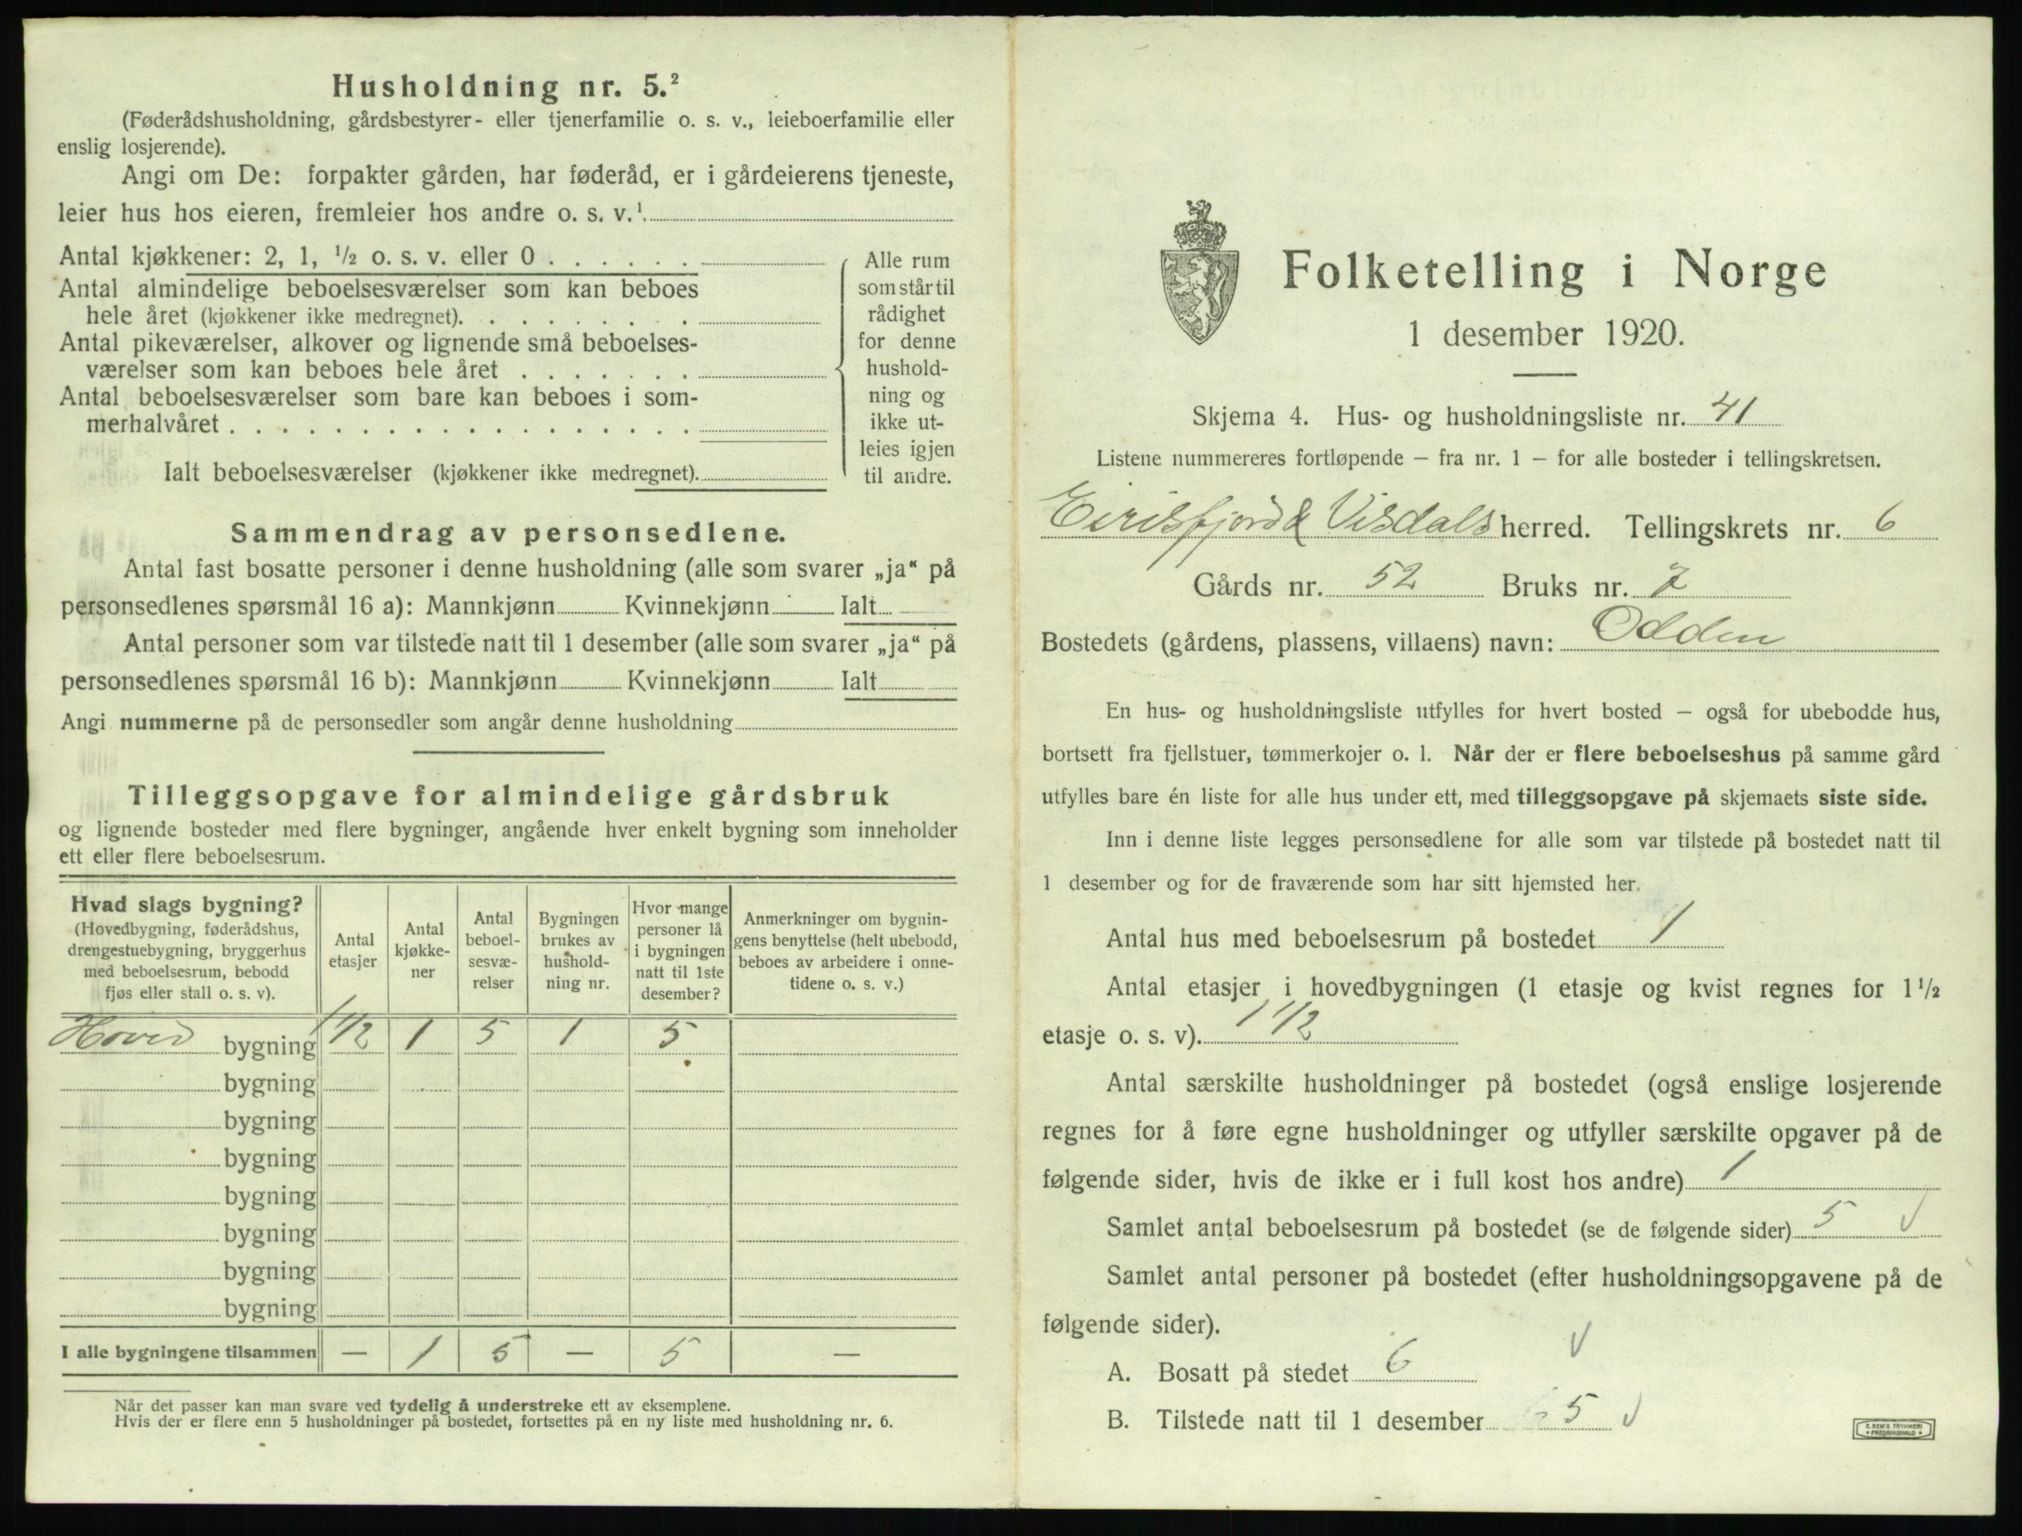 Husholdning nr. 5.²
(Føderådshusholdning, gårdsbestyrer- eller tjenerfamilie o. s. v., leieboerfamilie eller
enslig losjerende).
Angi om De: forpakter gården, har føderåd, er i gårdeierens tjeneste,
leier hus hos eieren, fremleier hos andre o. s. v.¹
Antal kjøkkener: 2, 1, ½ o. s. v. eller 0
Antal almindelige beboelsesværelser som kan beboes
hele året (kjøkkener ikke medregnet).
Antal pikeværelser, alkover og lignende små beboelses-
værelser som kan beboes hele året
Antal beboelsesværelser som bare kan beboes i som-
merhalvåret
Ialt beboelsesværelser (kjøkkener ikke medregnet).
Alle rum
som står til
rådighet
for denne
hushold-
ning og
ikke ut-
leies igjen
til andre.
Sammendrag av personsedlene.
Antal fast bosatte personer i denne husholdning (alle som svarer „ja“ på
personsedlenes spørsmål 16 a): Mannkjønn Kvinnekjønn Ialt
Antal personer som var tilstede natt til 1 desember (alle som svarer „ja“ på
personsedlenes spørsmål 16 b): Mannkjønn Kvinnekjønn Ialt
Angi nummerne på de personsedler som angår denne husholdning
Tilleggsopgave for almindelige gårdsbruk
og lignende bosteder med flere bygninger, angående hver enkelt bygning som inneholder
ett eller flere beboelsesrum.
Hvad slags bygning?
(Hovedbygning, føderådshus,
drengestuebygning, bryggerhus
med beboelsesrum, bebodd
fjøs eller stall o. s. v).
Antal
etasjer
Antal
kjøkke-
ner
Antal
beboel-
sesvæ-
relser
Bygningen
brukes av
hushold-
ning nr.
Hvor mange
personer lå
i bygningen
natt til 1ste
desember?
Anmerkninger om bygnin-
gens benyttelse (helt ubebodd,
beboes av arbeidere i onne-
tidene o. s. v.)
Hoved bygning 1 1/2 1 5 1 5
bygning
bygning
bygning
bygning
bygning
bygning
bygning
I alle bygningene tilsammen — 1 5 — 5 —
Når det passer kan man svare ved tydelig å understreke ett av eksemplene.
Hvis der er flere enn 5 husholdninger på bostedet, fortsettes på en ny liste med husholdning nr. 6.
Folketelling i Norge
1 desember 1920.
Skjema 4. Hus- og husholdningsliste nr. 41
Listene nummereres fortløpende — fra nr. 1 — for alle bosteder i tellingskretsen.
Eirisfjord & Visdals herred. Tellingskrets nr. 6
Gårds nr. 52 Bruks nr. 7
Bostedets (gårdens, plassens, villaens) navn: Odden
En hus- og husholdningsliste utfylles for hvert bosted — også for ubebodde hus,
bortsett fra fjellstuer, tømmerkojer o. l. Når der er flere beboelseshus på samme gård
utfylles bare én liste for alle hus under ett, med tilleggsopgave på skjemaets siste side.
Inn i denne liste legges personsedlene for alle som var tilstede på bostedet natt til
1 desember og for de fraværende som har sitt hjemsted her.
Antal hus med beboelsesrum på bostedet 1
Antal etasjer i hovedbygningen (1 etasje og kvist regnes for 1 ½
etasje o. s. v). 1 1/2
Antal særskilte husholdninger på bostedet (også enslige losjerende
regnes for å føre egne husholdninger og utfyller særskilte opgaver på de
følgende sider, hvis de ikke er i full kost hos andre) 1
Samlet antal beboelsesrum på bostedet (se de følgende sider) 5 √
Samlet antal personer på bostedet (efter husholdningsopgavene på de
følgende sider).
A. Bosatt på stedet 6 √
B. Tilstede natt til 1 desember 5 √
E. SEM'S TRYKKERI
FREDRIKSHALD